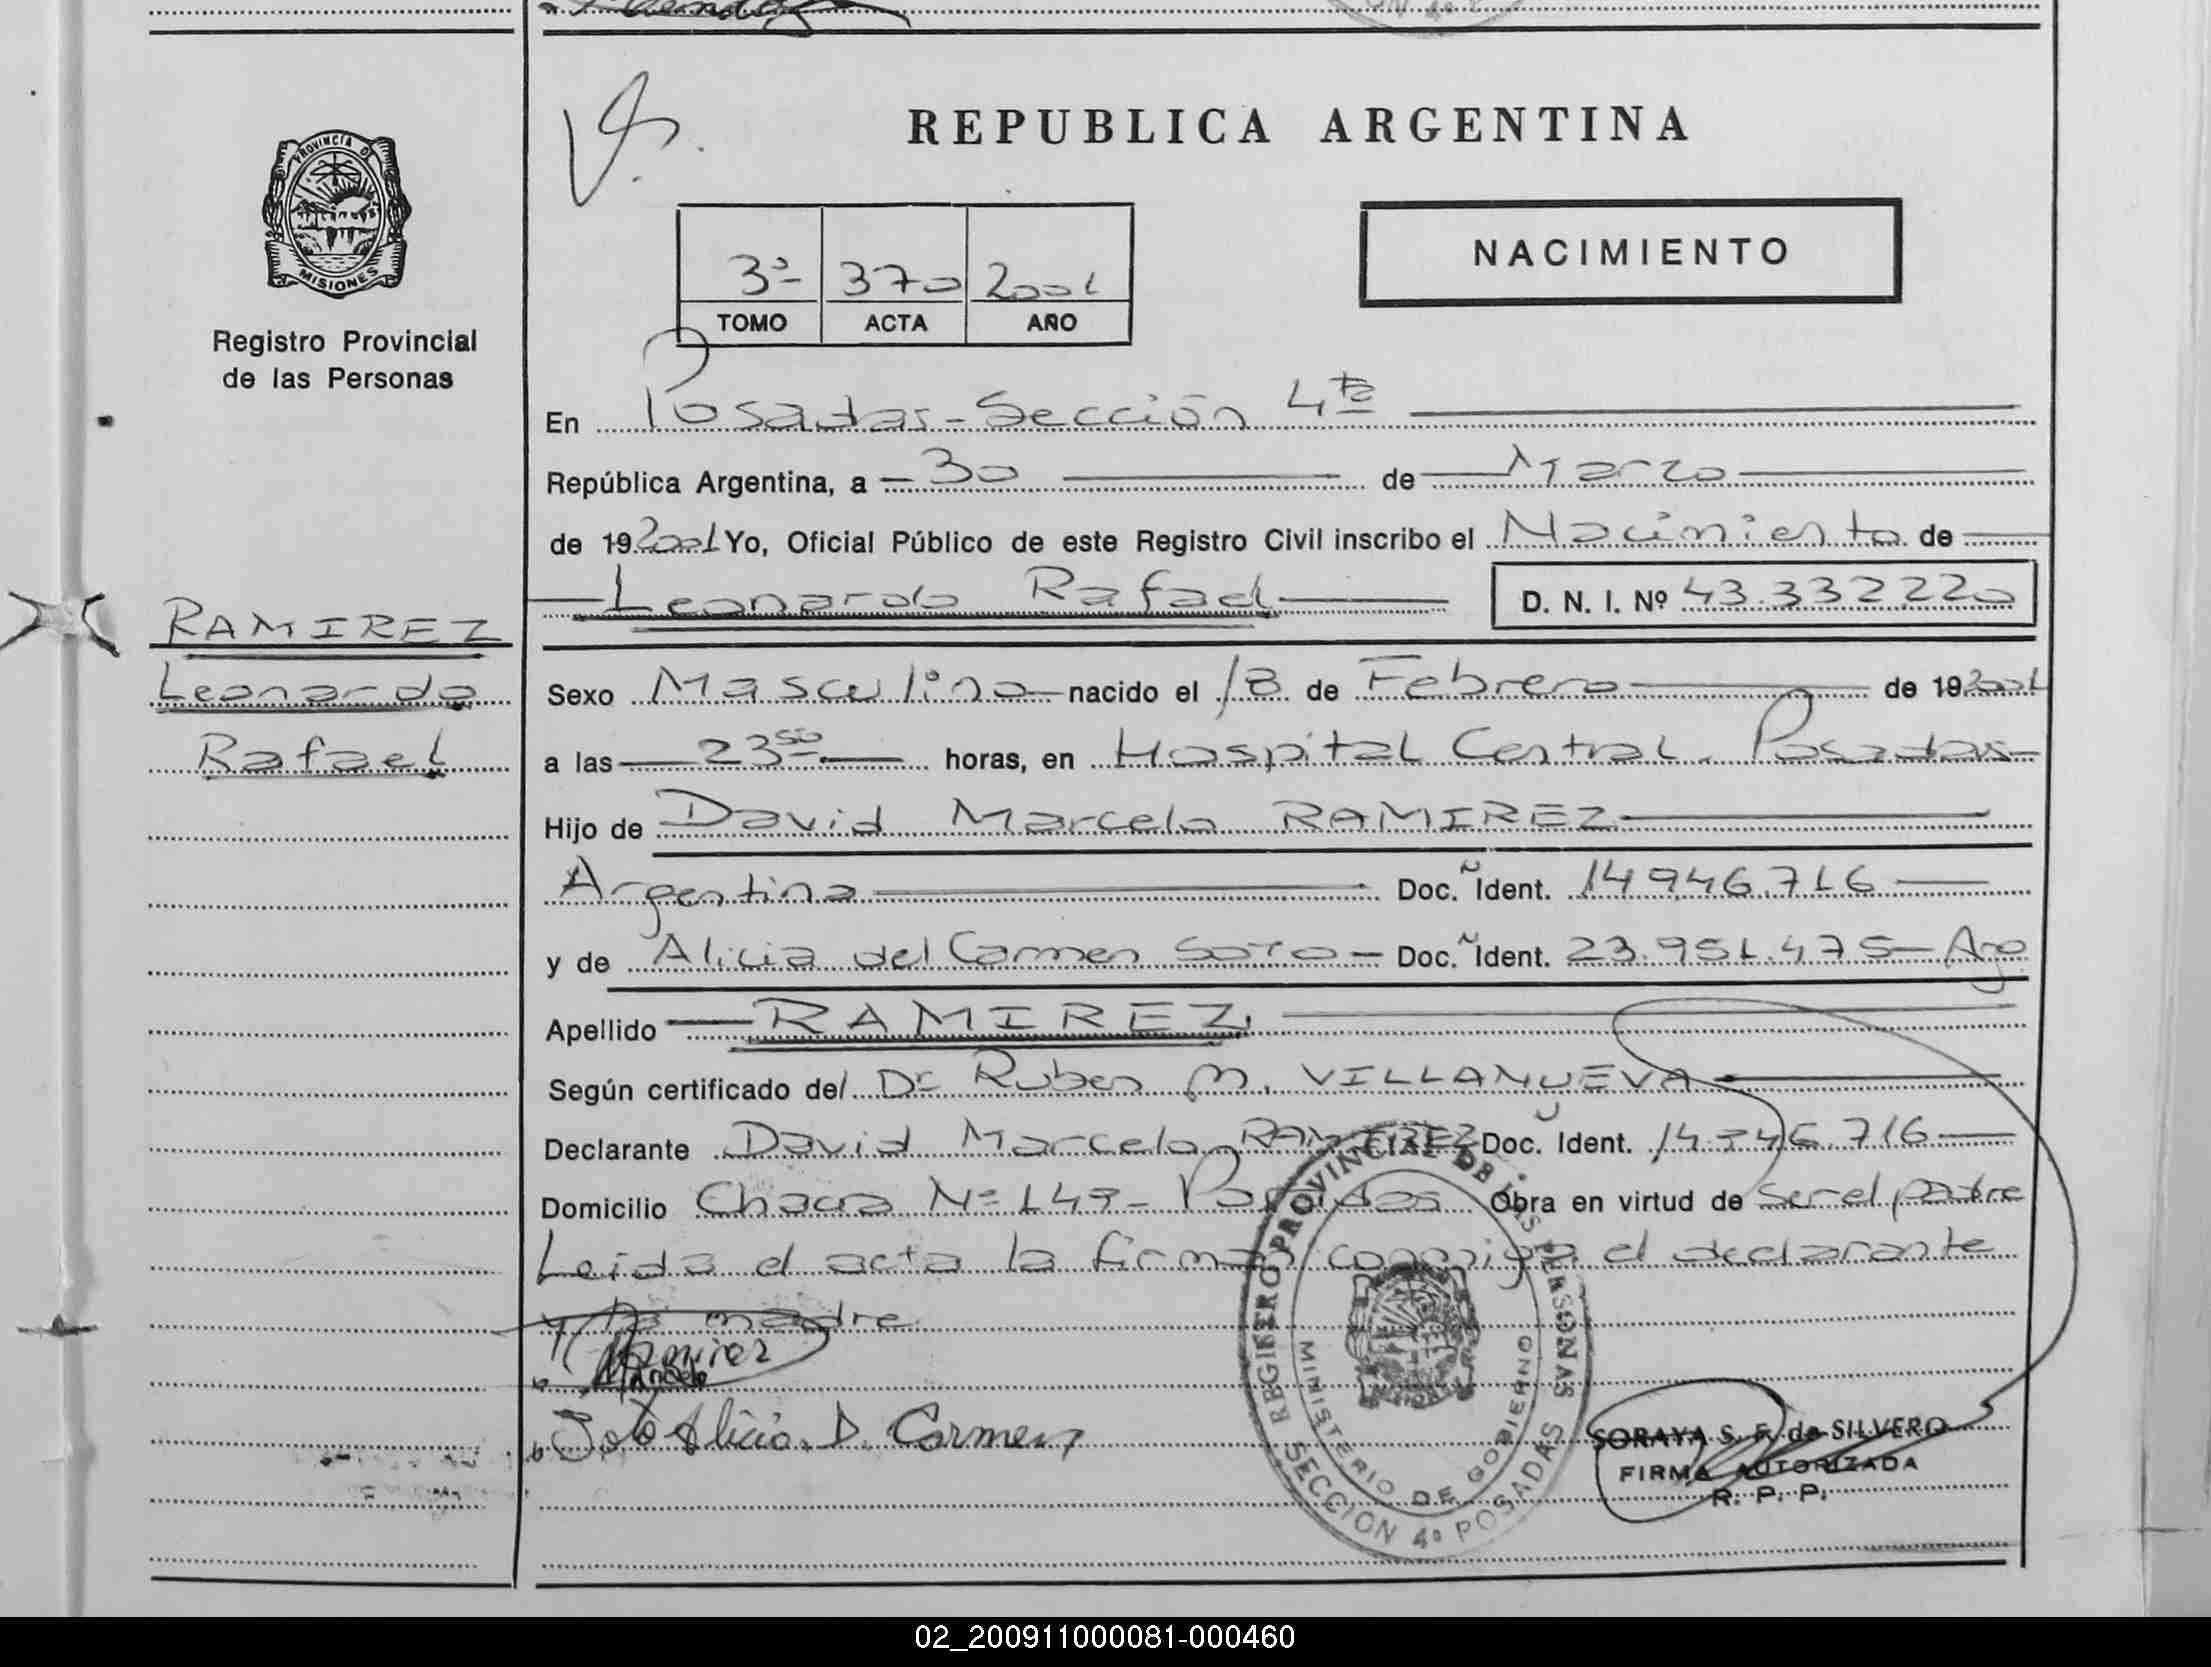 PROVINCIA DE
MISIONES
Registro Provincial
de las Personas
RAMIREZ
Leonardo
Rafael
REPUBLICA ARGENTINA
3º 370 2001
TOMO ACTA AÑO
NACIMIENTO
En Posadas - Sección 4ta
República Argentina, a 30 de Marzo
de 19 2001 Yo, Oficial Público de este Registro Civil inscribo el Nacimiento de
Leonardo Rafael D. N. I. Nº 43.332220
Sexo Masculino nacido el 18 de Febrero de 19 2001
a las 23 50 horas, en Hospital Central. Posadas
Hijo de David Marcelo RAMIREZ
Argentina Doc. Ident. 14946.716
y de Alicia del Carmen SOTO Doc. Ident. 23.951.475 - Arg
Apellido RAMIREZ
Según certificado del Dr Ruben M. VILLANUEVA
Declarante David Marcelo RAMIREZ Doc. Ident. 716
Domicilio Chacra Nº 149 - Posadas Obra en virtud de ser el padre
Leida el acta la firman conmigo el declarante
y la madre
Ramirez
Marcelo
Soto Alicia. D. Carmen
REGISTRO PROVINCIAL DE LAS PERSONAS
MINISTERIO DE GOBIERNO
SECCION 4º POSADAS
SORAYA S. F. de SILVERO
FIRMA AUTORIZADA
R. P. P.
02_200911000081-000460